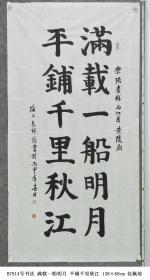 宋張孝祥西江月黃陵廟
滿載一船明月
平鋪千里秋江
B7914号书法 满载一船明月 平铺千里秋江 138×68cm